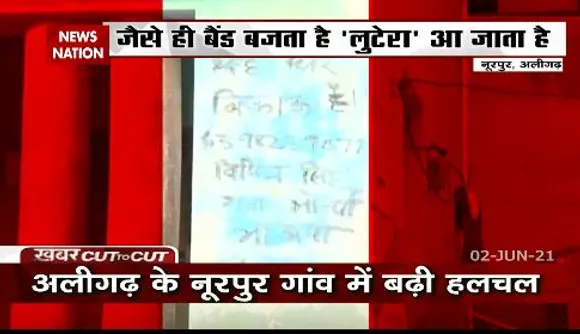 NEWS
NATION
जैसे ही बैंड बजता है 'लुटेरा' आ जाता है
नूरपुर, अलीगढ़
यह घर
बिकाऊ है।
खबर CUT TO CUT
02-JUN-21
अलीगढ़ के नूरपुर गांव में बढ़ी हलचल